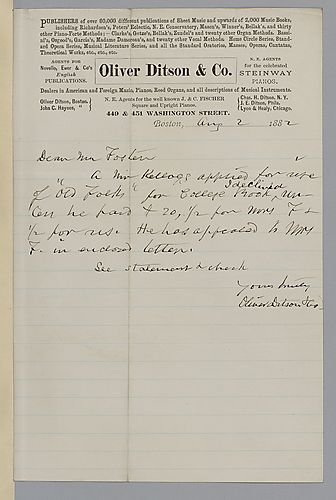 PUBLISHERS of over 60,000 different publications of Sheet Music and upwards of 2,000 Music Books,
including Richardson's, Peters' Eclectic, N. E. Conservatory, Mason's, Winner's, Bellak's, and thirty
other Piano-Forte Methods:— Clarke's, Getze's, Bellak's, Zundel's and twenty other Organ Methods. Bassi-
ni's, Osgood's, Garcia's, Madame Damoreau's, and twenty other Vocal Methods. Home Circle Series, Stand-
ard Opera Series, Musical Literature Series, and all the Standard Oratorios, Masses, Operas, Cantatas,
Theoretical Works, etc., etc., etc.
AGENTS FOR
Novello, Ewer & Co's
English
PUBLICATIONS.
Oliver Ditson & Co.
N. E. AGENTS
for the celebrated
STEINWAY
PIANOS.
Dealers in American and Foreign Music, Pianos, Reed Organs, and all descriptions of Musical Instruments.
Oliver Ditson, Boston.
John C. Haynes, "
N. E. Agents for the well known J. & C. FISCHER
Square and Upright Pianos.
Chas. H. Ditson, N. Y.
J. E. Ditson, Phila.
Lyon & Healy, Chicago.
449 & 451 WASHINGTON STREET.
Boston, Aug 2 1882
Dear Mr Foster
A Mr Kellogg applied for use
of "Old Folks" for College Book, I declined un-
less he paid $20, ½ for Mrs F &
½ for us. He has appealed to Mrs
F. in enclosed letter.
See statement & check
Yours truly
Oliver Ditson & Co